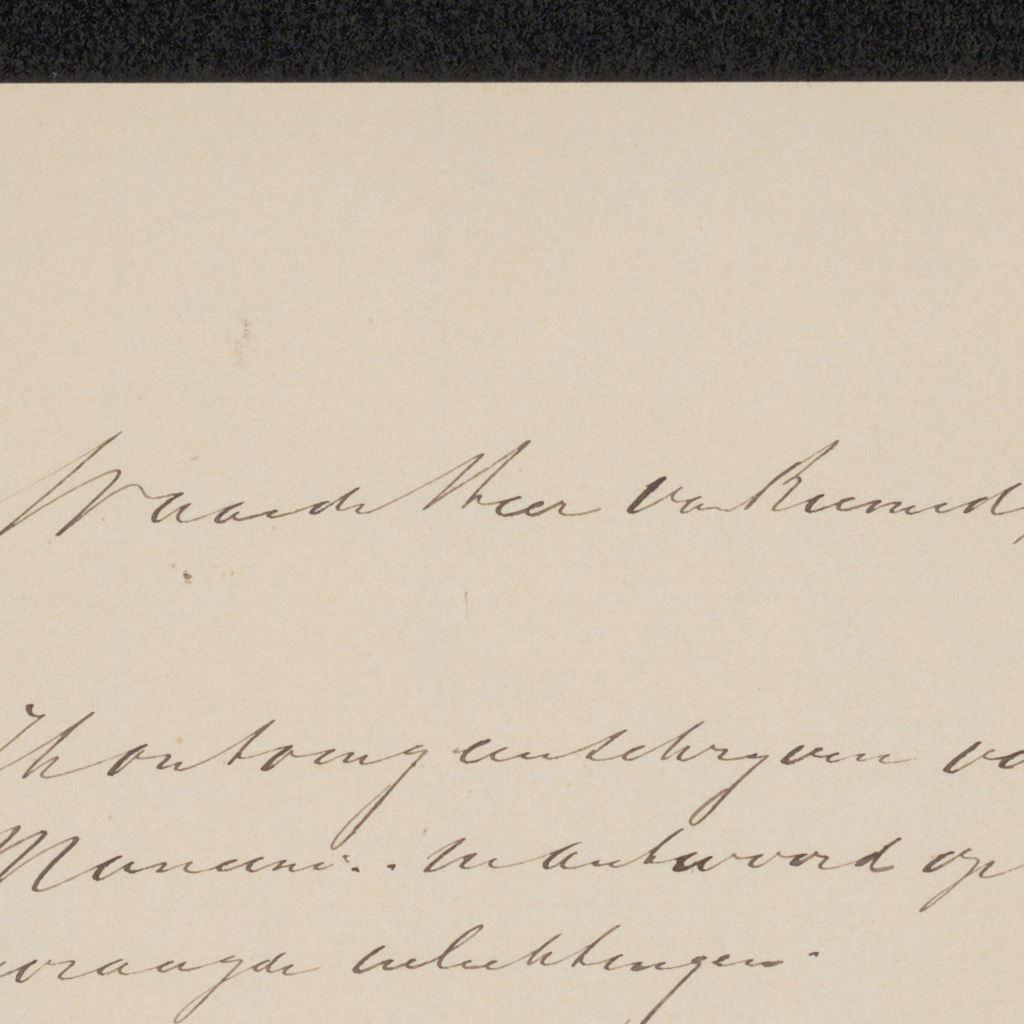 Waarde Heer van Reemed
Ik ontving een schryven va
Mancini.. in antwoord op
vraagde inlichtingen.